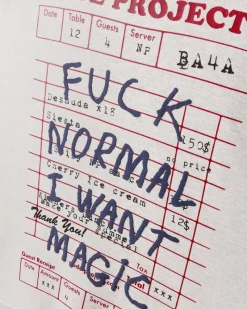 E PROJECT
Date Table Guests Server
12 4 NP BA4A
FUCK
Desbuda x18 150$
Siesta
NORMAL
no price
Cherry ice cream 12$
I WANT
Thank You!
Tax
MAGIC
xxx
Guest Receipt
Date Amount Guests Server
xxx 4